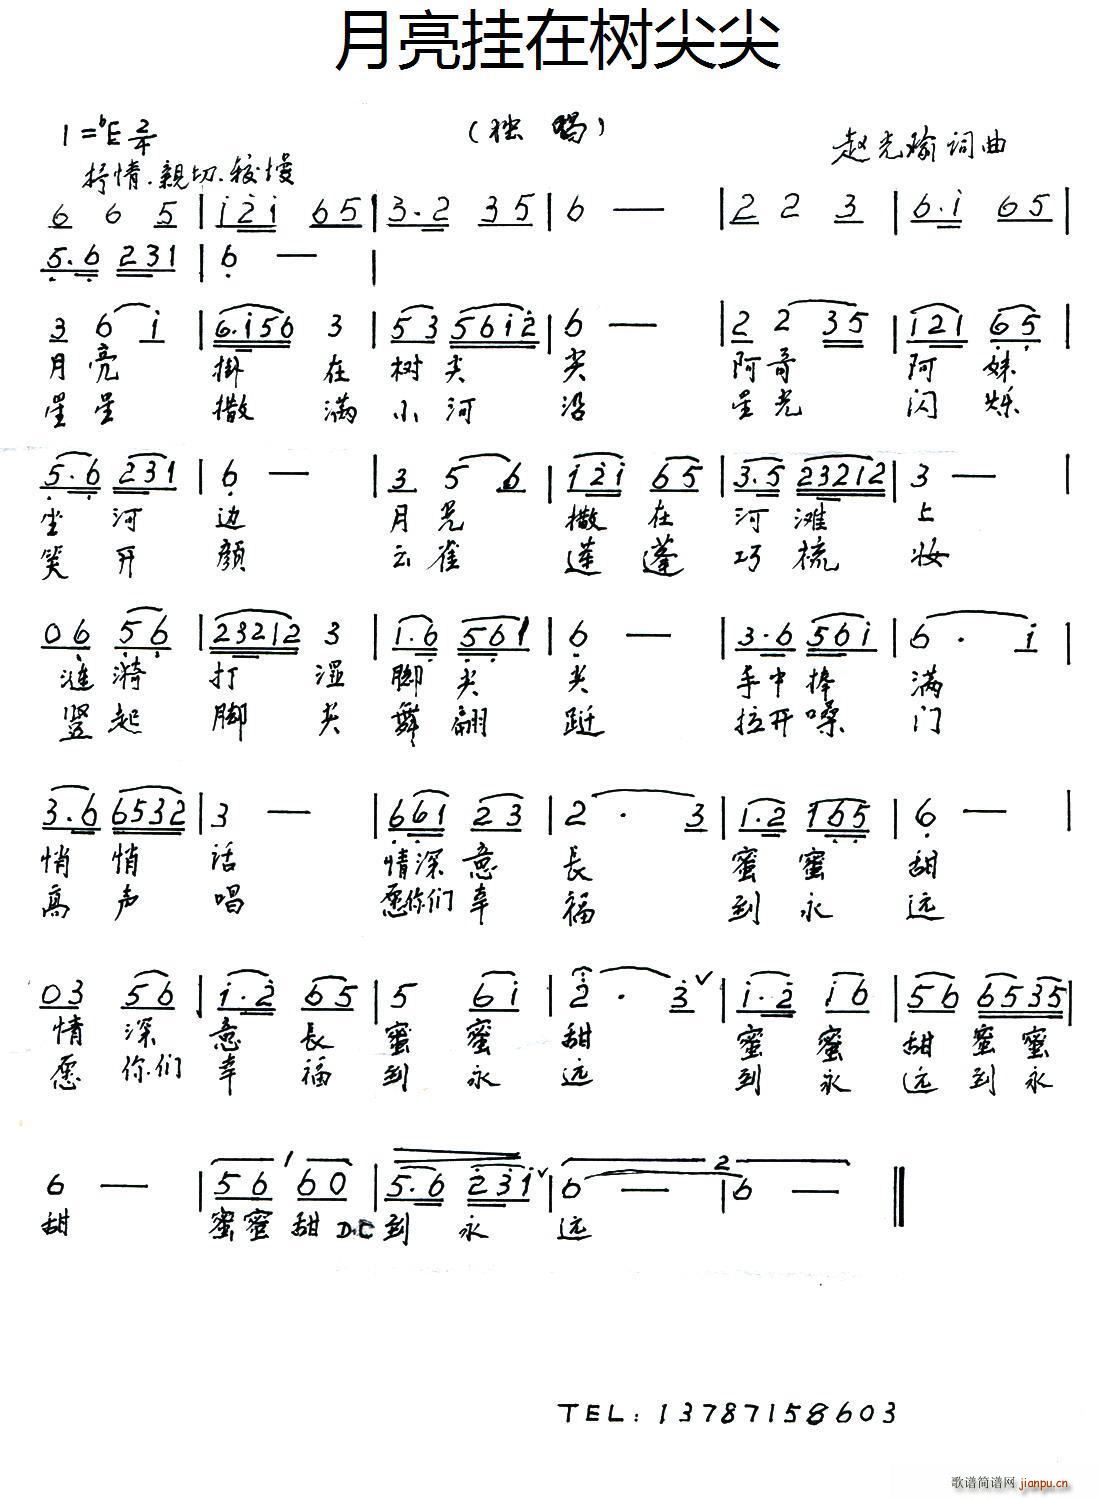 月亮挂在树尖尖
1=♭E 2/4
(独 唱)
赵光瑜 词曲
抒情.亲切.较慢
6 6 5 | i 2 i 6 5 | 3·2 3 5 | 6 — | 2 2 3 | 6·i 6 5 |
5·6 2 3 1 | 6 — |
3 6 i | 6·i 5 6 3 | 5 3 5 6 i 2 | 6 — | 2 2 3 5 | i 2 i 6 5 |
月 亮 掛 在 树 尖 尖 阿 哥 阿 妹
星 星 撒 满 小 河 沿 星 光 闪 烁
5·6 2 3 1 | 6 — | 3 5 6 | i 2 i 6 5 | 3·5 2 3 2 1 2 | 3 — |
坐 河 边 月 光 撒 在 河 滩 上
笑 开 颜 云 雀 莲 蓬 巧 梳 妆
0 6 5 6 | 2 3 2 1 2 3 | 1·6 5 6 1 | 6 — | 3·6 5 6 i | 6 · i |
涟 漪 打 湿 脚 尖 尖 手 中 捧 满
竖 起 脚 尖 舞 翩 跹 拉 开 嗓 门
3·6 6 5 3 2 | 3 — | 6 6 1 2 3 | 2 · 3 | 1·2 1 6 5 | 6 — |
悄 悄 话 情 深 意 長 蜜 蜜 甜
高 声 唱 愿 你 们 幸 福 到 永 远
0 3 5 6 | i·2 6 5 | 5 6 i | 2 · 3 | i·2 i 6 | 5 6 6 5 3 5 |
情 深 意 長 蜜 蜜 甜 蜜 蜜 甜 蜜 蜜
愿 你 们 幸 福 到 永 远 到 永 远 到 永
1 2
6 — | 5 6 6 0 | 5·6 2 3 1 | 6 — | 6 — ‖
甜 蜜 蜜 甜 D.C 到 永 远
TEL: 13787158603
歌谱简谱网 jianpu.cn